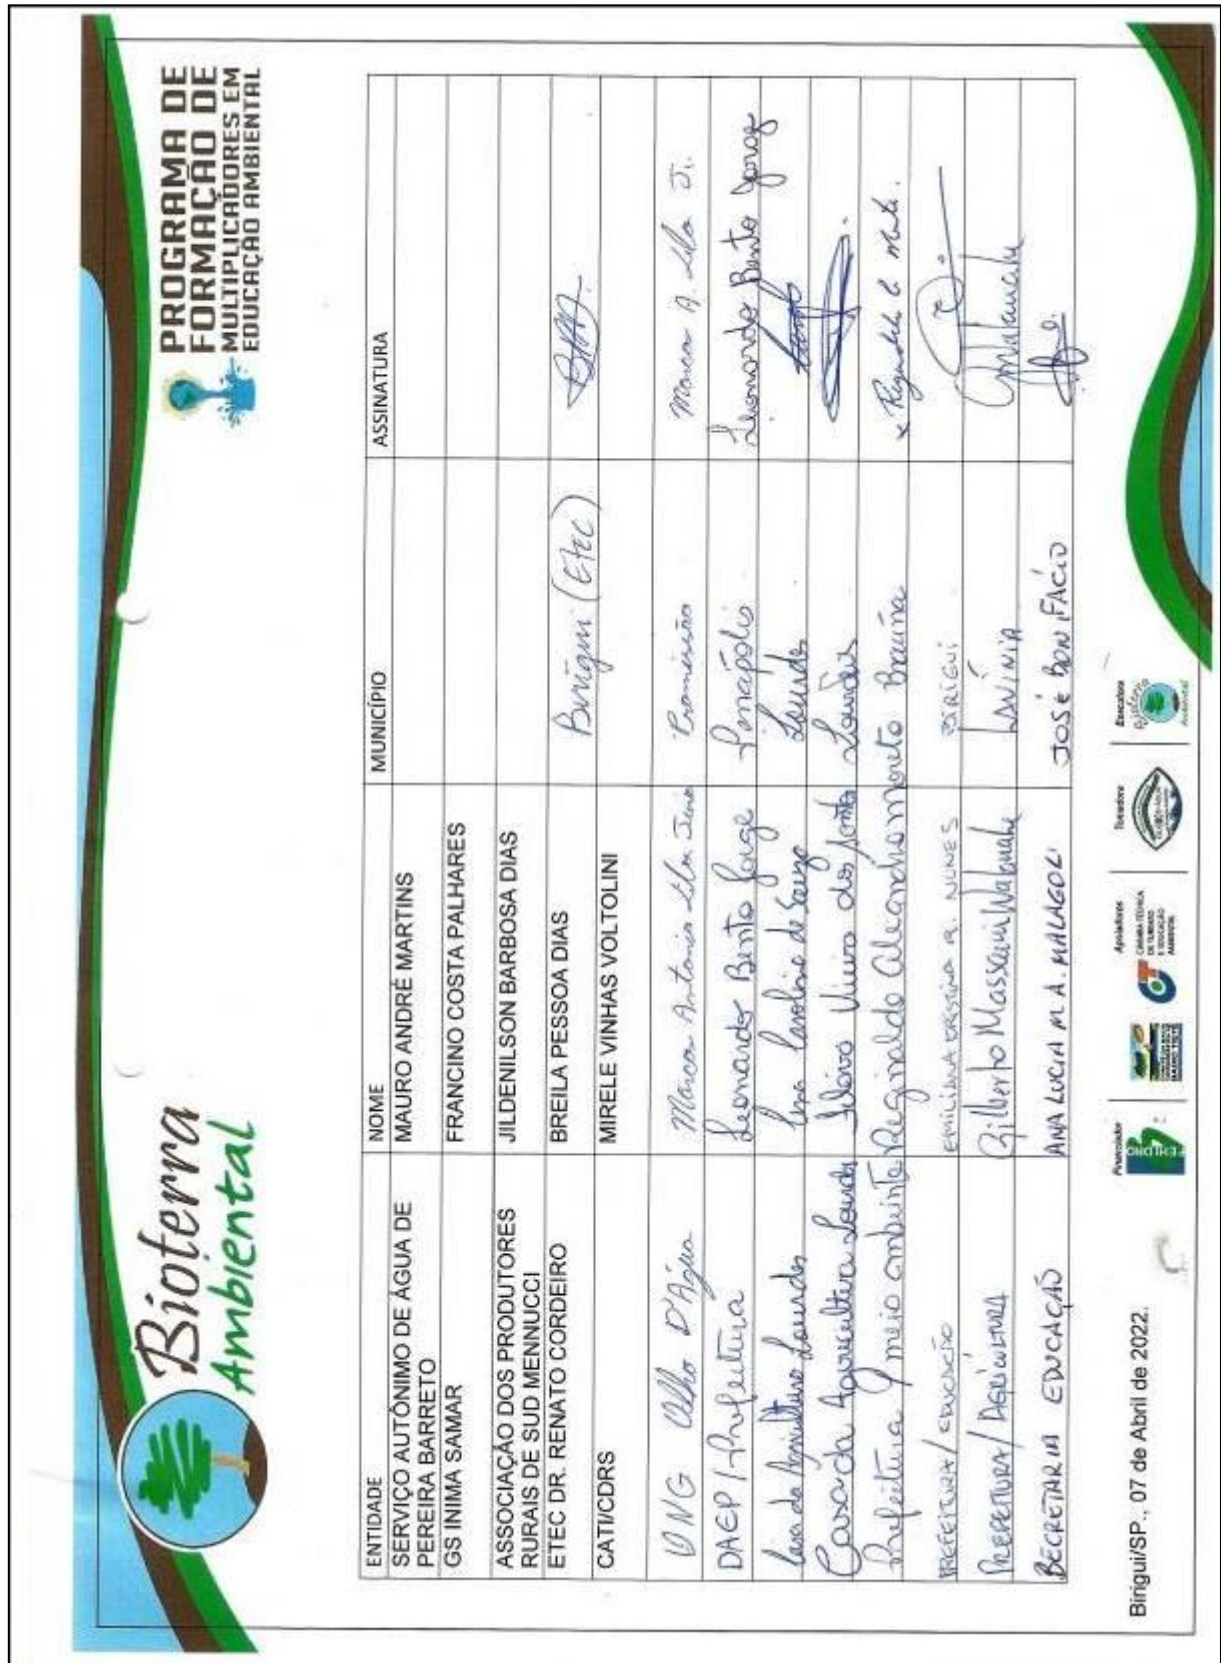 Bioterra
Ambiental
PROGRAMA DE
FORMAÇÃO DE
MULTIPLICADORES EM
EDUCAÇÃO AMBIENTAL
ENTIDADE NOME MUNICÍPIO ASSINATURA
SERVIÇO AUTÔNIMO DE ÁGUA DE PEREIRA BARRETO MAURO ANDRÉ MARTINS
GS INIMA SAMAR FRANCINO COSTA PALHARES
ASSOCIAÇÃO DOS PRODUTORES RURAIS DE SUD MENNUCCI JILDENILSON BARBOSA DIAS
ETEC DR. RENATO CORDEIRO BREILA PESSOA DIAS Birigui (Etec)
CATI/CDRS MIRELE VINHAS VOLTOLINI
ONG Olho D'Água Marcos Antonio Promissão Marcos A.
DAEP / Prefeitura Leonardo Bento Jorge Penápolis Leonardo Bento Jorge
Casa da Agricultura Lourdes Ana Caroline de Lourdes
Casa da Agricultura Lourdes Vieira dos Santos Lourdes
Prefeitura / meio ambiente Reginaldo Braúna
PREFEITURA / EDUCAÇÃO NUNES BIRIGUI
PREFEITURA / AGRICULTURA Gilberto LAVÍNIA
SECRETARIA EDUCAÇÃO ANA LUCIA M. A. MALAGOLI JOSÉ BONIFÁCIO
Financiador
FEHIDRO
Apoiadores
CÂMARA TÉCNICA
DE TURISMO
E EDUCAÇÃO
AMBIENTAL
Tomadora
Executora
Bioterra
Ambiental
Birigui/SP., 07 de Abril de 2022.